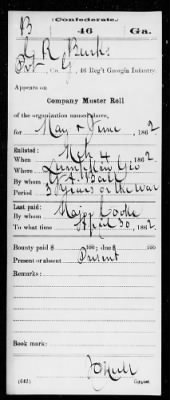 Confederate.
B 46 Ga.
G R Burks
Pvt, Co. G, 46 Reg't Georgia Infantry.
Appears on
Company Muster Roll
of the organization named above,
for May & June, 1862
Enlisted:
When Mch 4, 1862
Where Lumpkin Geo
By whom Ball
Period 3 Years or the War
Last paid:
By whom Major Cooke
To what time April 30, 1862
Bounty paid $ 100; due $ 100
Present or absent Present
Remarks:
Book mark:
(642) Copyist.